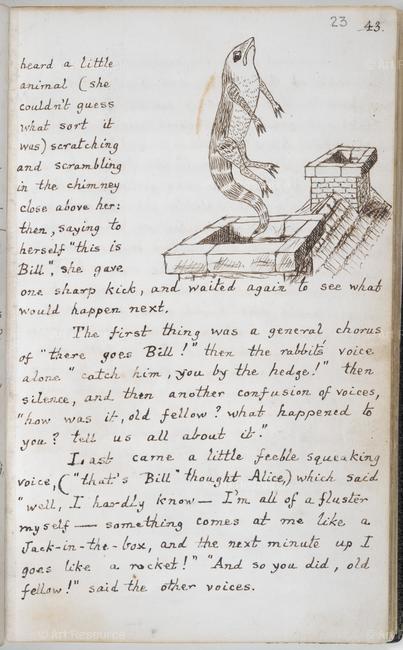 23 43.
heard a little
animal (she
couldn't guess
what sort it
was) scratching
and scrambling
in the chimney
close above her:
then, saying to
herself "this is
Bill", she gave
one sharp kick, and waited again to see what
would happen next.
The first thing was a general chorus
of "there goes Bill!" then the rabbit's voice
alone "catch him, you by the hedge!" then
silence, and then another confusion of voices,
"how was it, old fellow? what happened to
you? tell us all about it."
Last came a little feeble squeaking
voice, ("that's Bill" thought Alice,) which said
"well, I hardly know — I'm all of a fluster
myself — something comes at me like a
Jack-in-the-box, and the next minute up I
goes like a rocket!" "And so you did, old
fellow!" said the other voices.
© Art Resource
© Art Resource